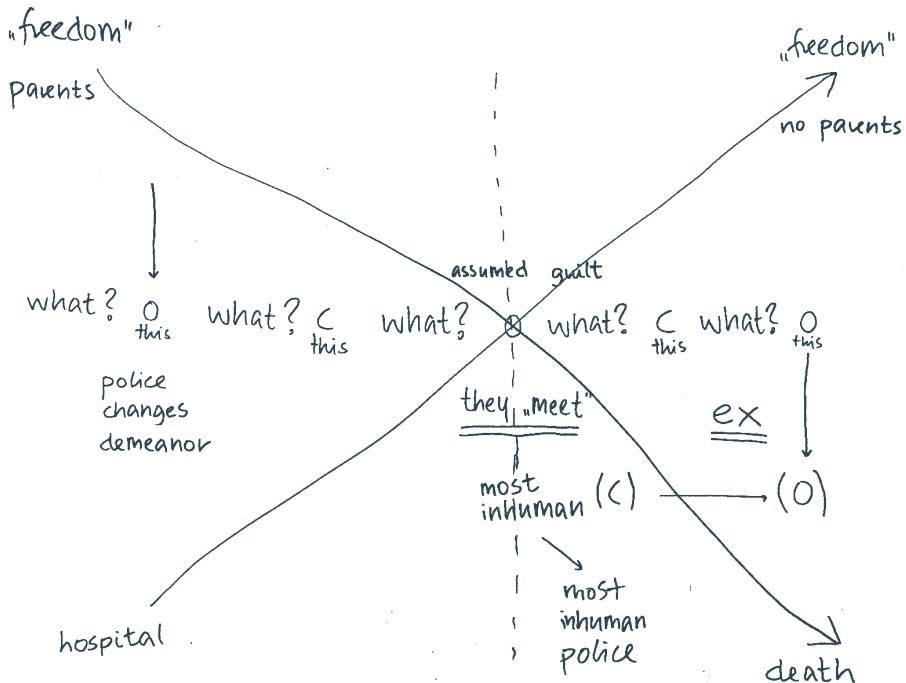 „freedom"
„freedom"
parents
no parents
assumed guilt
what? O what? C what? what? C what? O
this this this this
police
changes
demeanor
they „meet"
ex
most
inhuman (C) (O)
most
inhuman
police
hospital
death